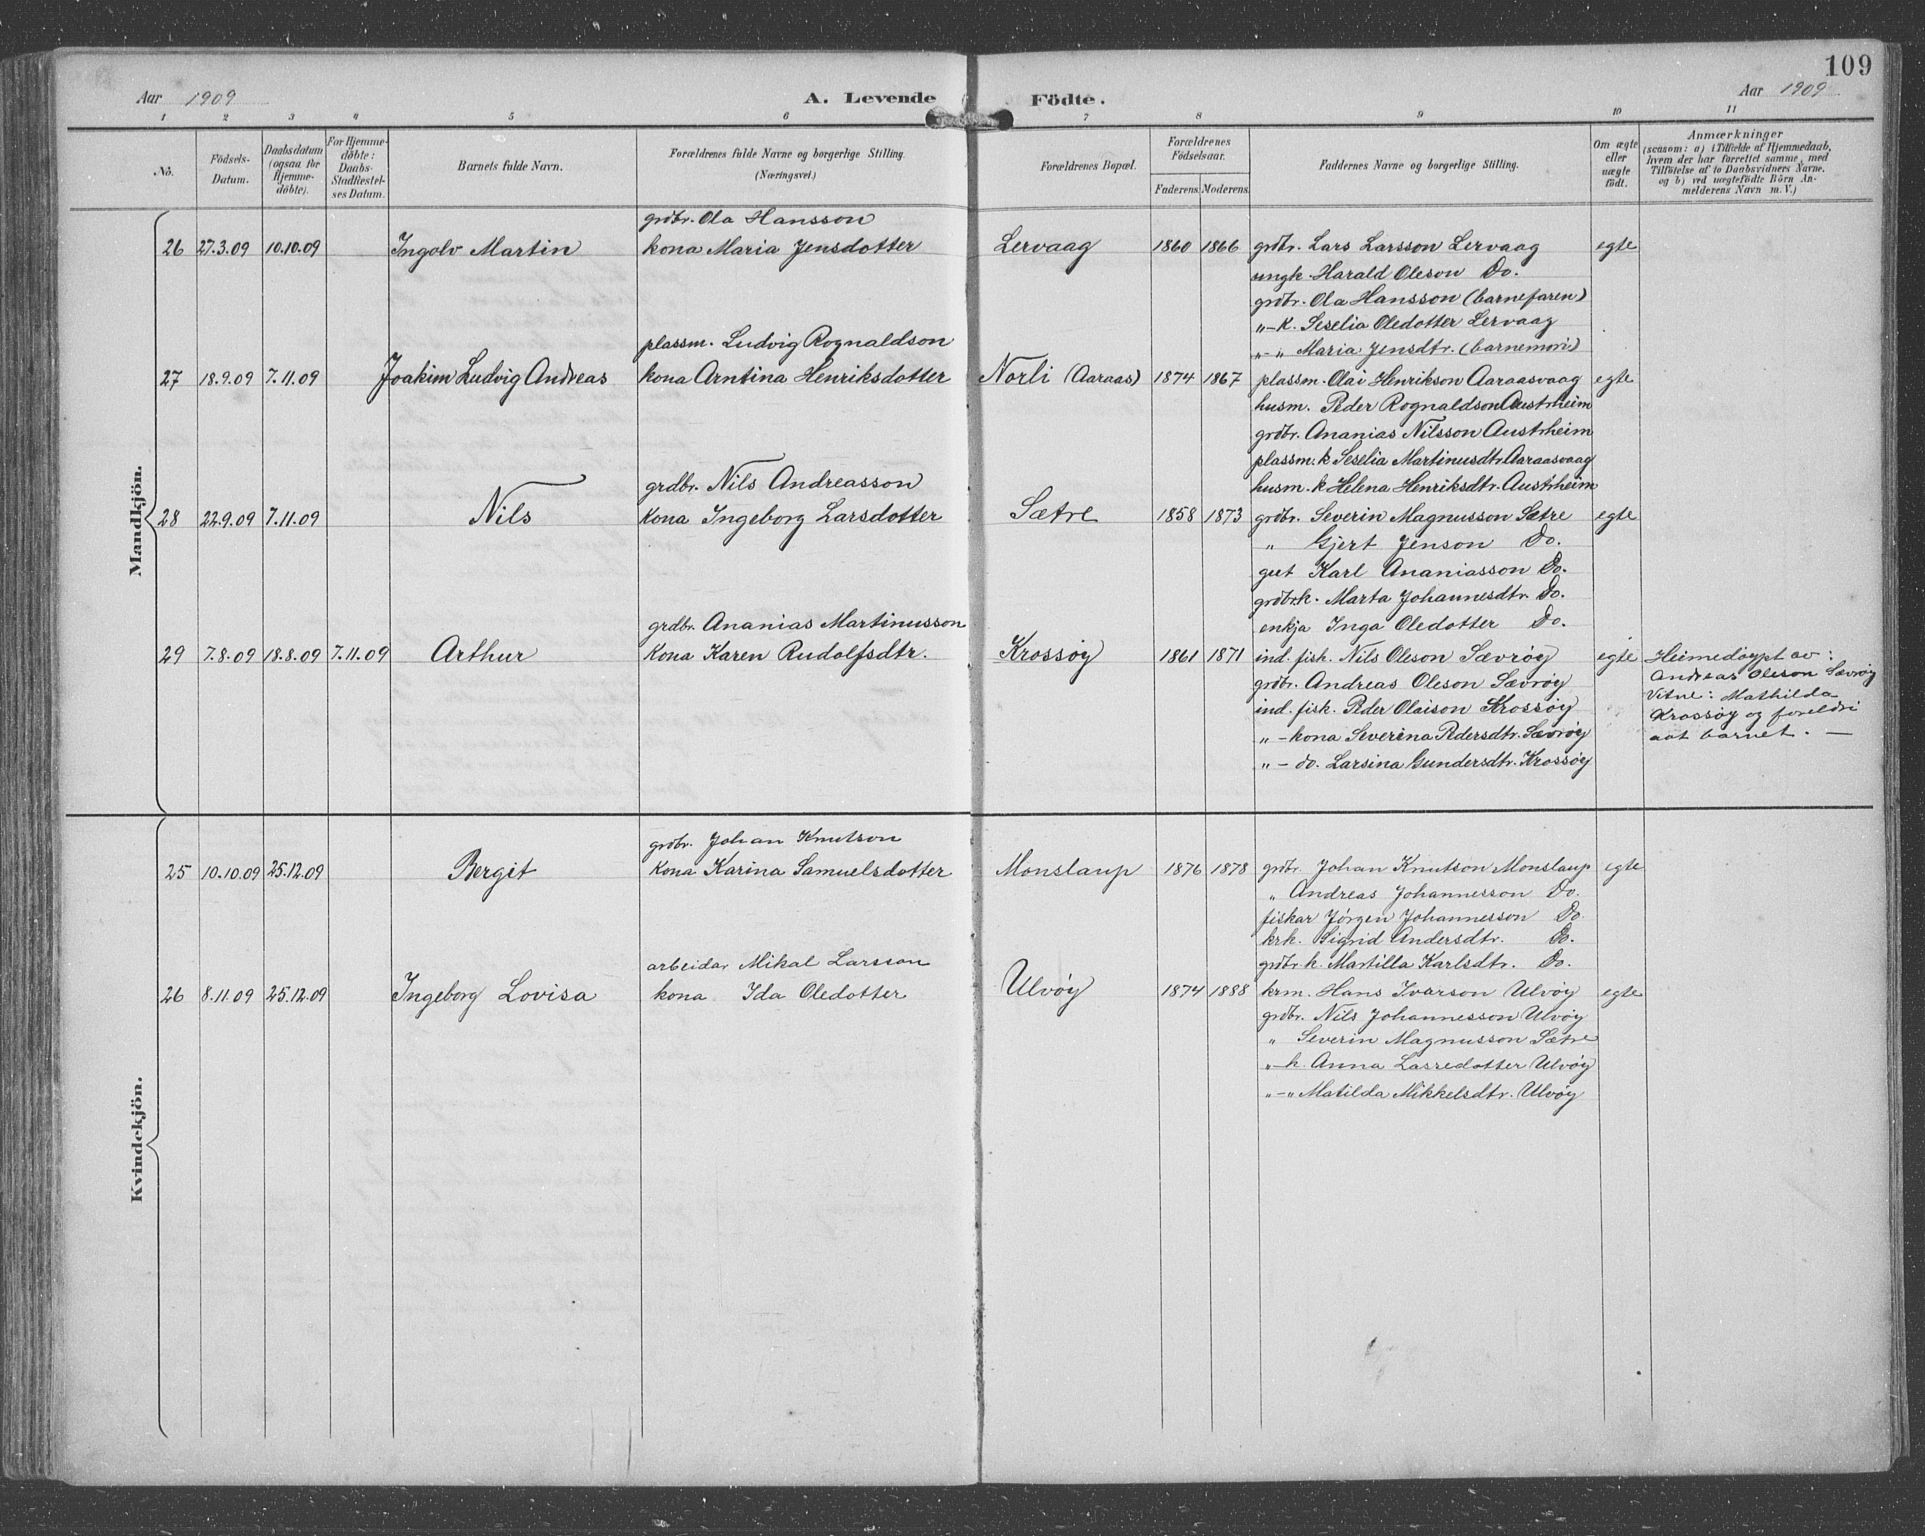 109
Aar 1909
A. Levende Födte.
Aar 1909
1 2 3 4 5 6 7 8 9 10 11
No.
Födsels-
Datum.
Daabsdatum
(ogsaa for
Hjemme-
döbte).
For Hjemme-
döbte:
Daabs-
Stadfæstel-
ses Datum.
Barnets fulde Navn.
Forældrenes fulde Navne og borgerlige Stilling.
(Næringsvei.)
Forældrenes Bopæl.
Forældrenes
Födselsaar.
Faderens. Moderens.
Faddernes Navne og borgerlige Stilling.
Om ægte
eller
uægte
födt.
Anmærkninger
(saasom: a) i Tilfælde af Hjemmedaab,
hvem der har forrettet samme, med
Tilföielse af to Daabsvidners Navne.
og b) ved uægtefödte Börn An-
melderens Navn m. V.)
Mandkjön.
grdbr. Ola Hansson
26 27.3.09 10.10.09 Ingolv Martin kona Maria Jensdotter Lervaag 1860 1866 grdbr. Lars Larsson Lervaag egte
ungk. Harald Oleson Do.
grdbr. Ola Hansson (barnefaren)
"-k. Seselia Oledotter Lervaag
"-" Maria Jensdtr. (barnemori)
plassm. Ludvig Rognaldson
27 18.9.09 7.11.09 Joakim Ludvig Andreas kona Arntina Henriksdotter Norli (Aaraas) 1874 1867 plassm. Olai Henrikson Aaraasvaag egte
husm. Peder Rognaldson Austrheim
grdbr. Ananias Nilsson Austrheim
plassm. k Seselia Martinusdtr. Aaraasvaag
husm. k Helena Henriksdtr. Austrheim
grdbr. Nils Andreasson
28 22.9.09 7.11.09 Nils kona Ingeborg Larsdotter Sætre 1858 1873 grdbr. Severin Magnusson Sætre egte
" Gjert Jenson Do.
gut Karl Ananiasson Do.
grdbr.k. Marta Johannesdtr. Do.
enkja Inga Oledotter Do.
grdbr. Ananias Martinusson
29 7.8.09 18.8.09 7.11.09 Arthur kona Karen Rudolfsdtr. Krossøy 1861 1871 ind. fisk. Nils Oleson Sævrøy egte Heimedøypt av:
grdbr. Andreas Oleson Sævrøy Andreas Oleson Sævrøy
ind. fisk. Peder Olaison Krossøy Vitne: Mathilda
"-kona Severina Pedersdtr. Sævrøy Krossøy og foreldri
"- do. Larsina Gundersdtr. Krossøy aat barnet. —
Kvindekjön.
grdbr. Johan Knutson
25 10.10.09 25.12.09 Bergit kona Karina Samuelsdotter Monslaup 1876 1878 grdbr. Johan Knutson Monslaup egte
" Andreas Johannesson Do.
fiskar Jørgen Johannesson Do.
krk. Sigrid Andersdtr. Do.
grdbr k. Martilla Karlsdtr. Do.
arbeidar Mikal Larsson
26 8.11.09 25.12.09 Ingeborg Lovisa kona Ida Oledotter Ulvøy 1874 1888 krm. Hans Ivarson Ulvøy egte
grdbr. Nils Johannesson Ulvøy
" Severin Magnusson Sætre
"-k. Anna Lasredotter Ulvøy
"-" Matilda Mikkelsdtr. Ulvøy